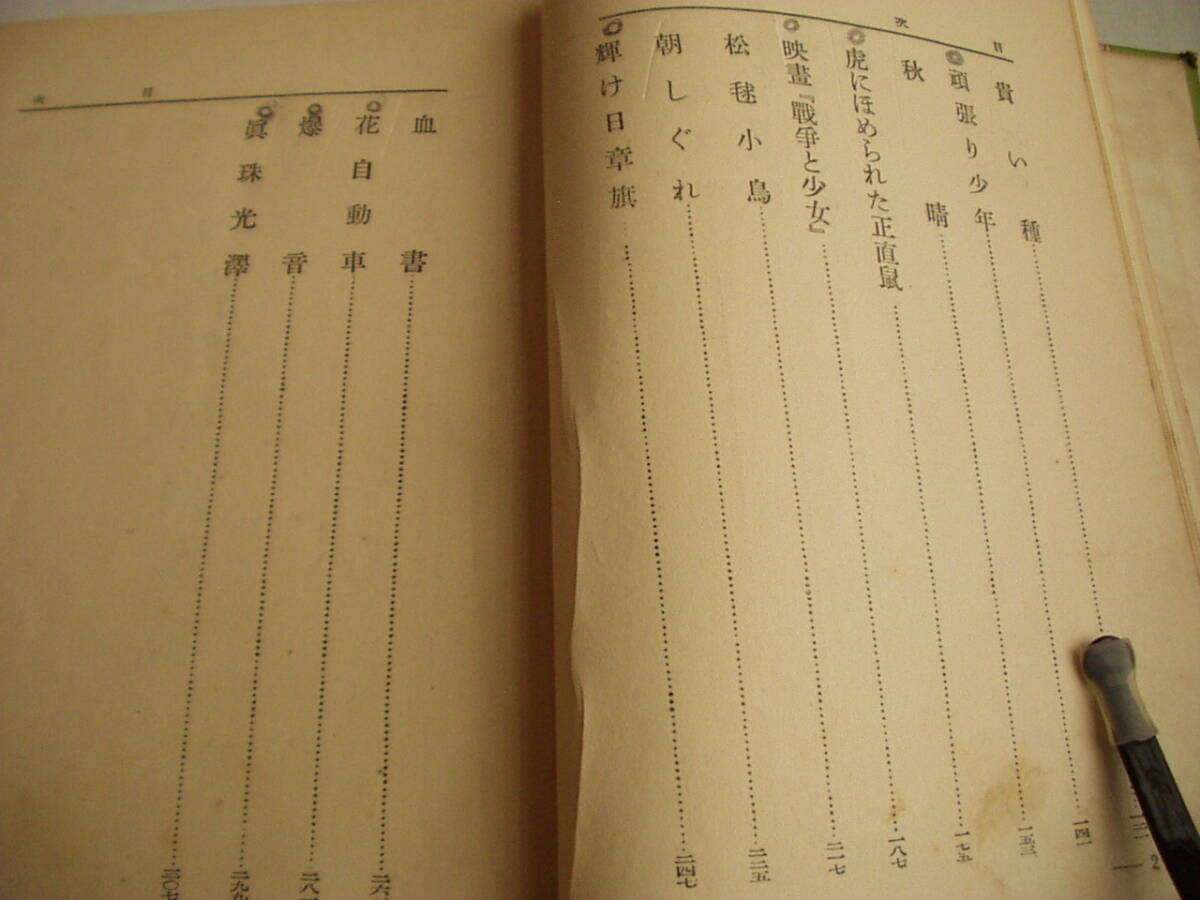 目次
貴い種
頑張り少年 一四一
秋晴 一五三
虎にほめられた正直鼠 一七五
映畫『戰爭と少女』 一八七
松毬小鳥 二一七
朝しぐれ 二二五
輝け日章旗 二四七
2
目次
血書
花自動車
爆音 二九九
眞珠光澤 三〇七